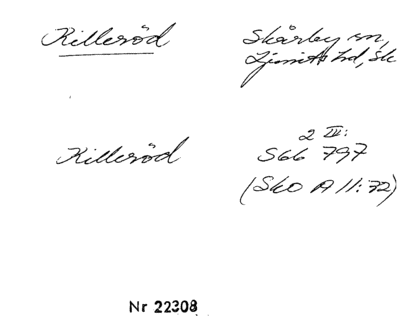 Killeröd
Skårby sn,
Ljunits hd, Sk
Killeröd
2 IV:
S66 797
(Sko A II:72)
Nr 22308